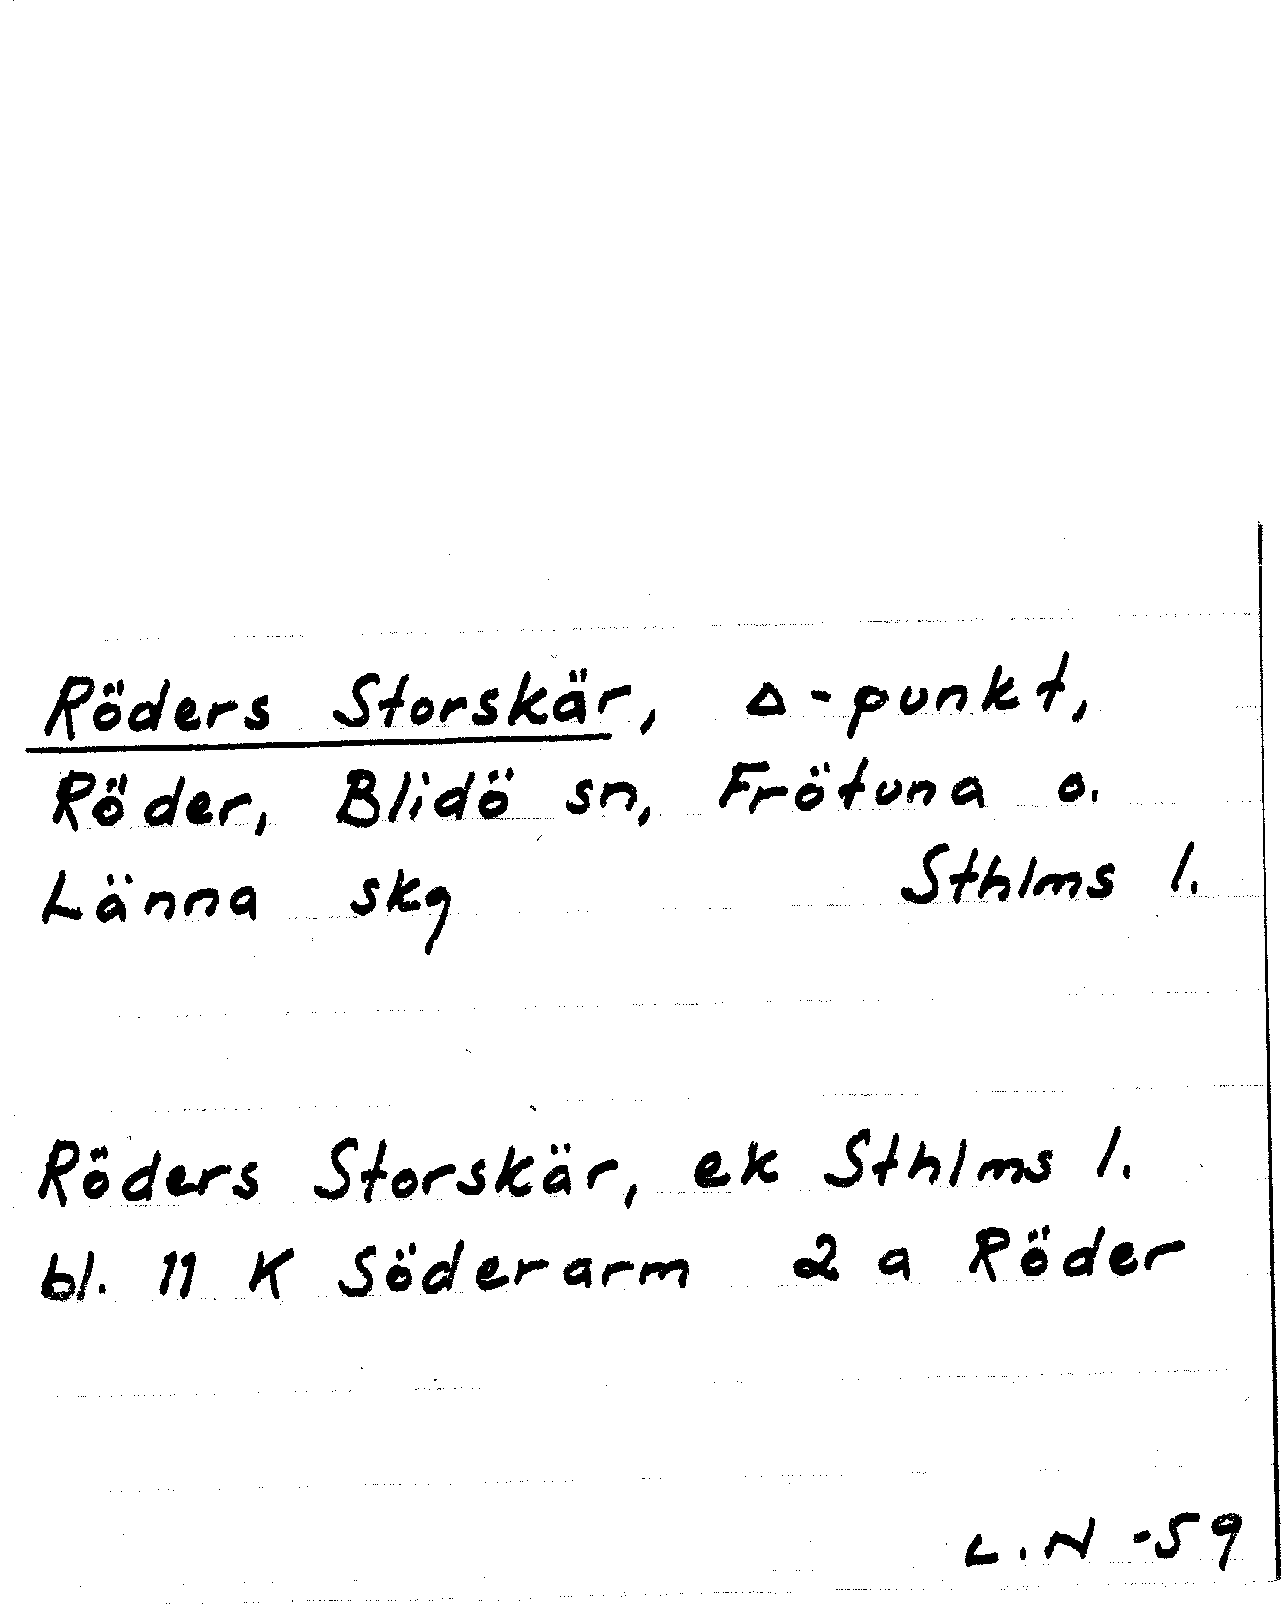 Röders Storskär, △-punkt,
Röder, Blidö sn, Frötuna o.
Länna skg Sthlms l.
Röders Storskär, ek Sthlms l.
bl. 11 K Söderarm 2 a Röder
L.N -59